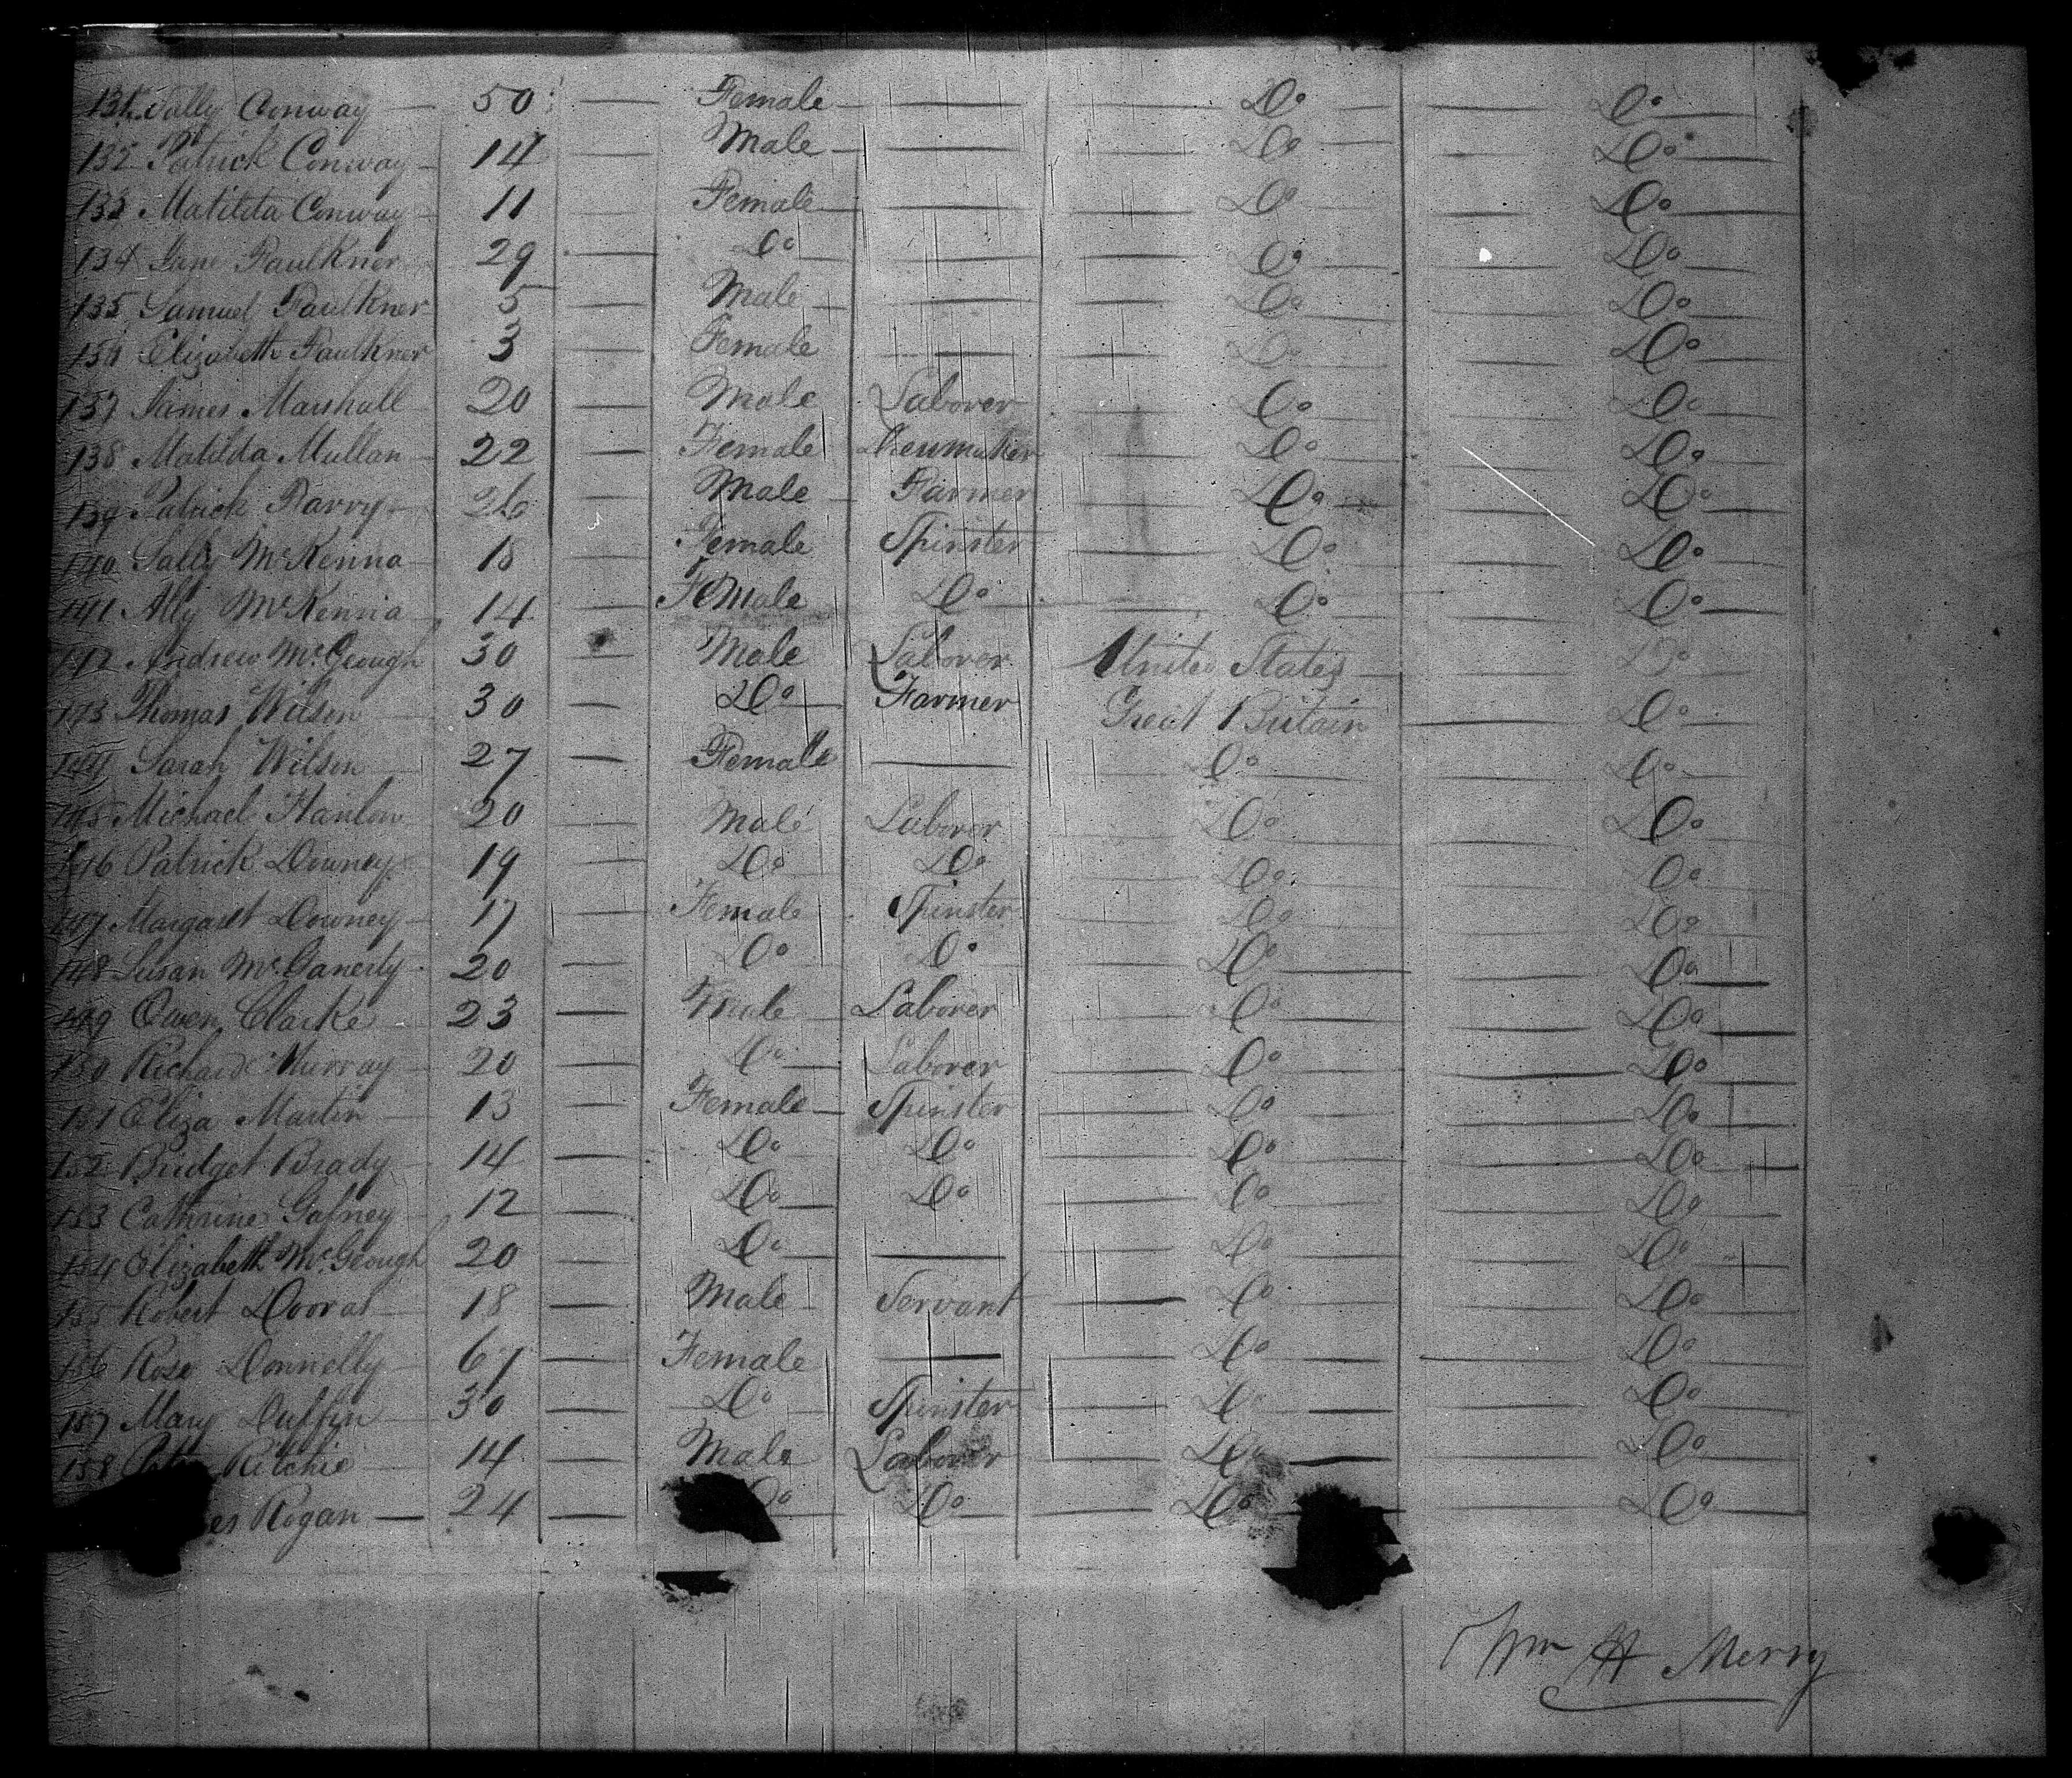 131 Sally Conway — 50 — Female — — Do — Do
132 Patrick Conway — 14 — Male — — Do — Do
133 Matilda Conway — 11 — Female — — Do — Do
134 Jane Faulkner 29 — Do — — Do — Do
135 Samuel Faulkner 5 — Male — — Do — Do
Elizabeth Faulkner 3 — Female — — Do — Do
137 James Marshall 20 — Male Laborer — Do — Do
138 Matilda Mullan — 22 — Female — Do — Do
139 Patrick Parry — 26 — Male — Farmer — Do — Do
140 Sally McKenna — 18 — Female Spinster — Do — Do
141 Ally McKenna 14 — Female Do — Do — Do
142 Andrew McGeough 30 — Male Laborer United States — Do
143 Thomas Wilson — 30 — Do — Farmer Great Britain — Do
144 Sarah Wilson — 27 — Female — Do — Do
145 Michael Hanlon 20 — Male Laboror Do — Do
146 Patrick Downey 19 — Do Do Do — Do
147 Margaret Downey — 17 — Female Spinster Do — Do
148 Susan 20 — Do Do Do — Do
149 Owen Clarke 23 — Male — Laborer Do — Do
150 Richard Murray — 20 — Do — Laborer Do — Do
151 Eliza Martin — 13 — Female — Spinster — Do — Do
152 Bridget Brady — 14 — Do Do — Do — Do
153 Cathrine Gafney — 12 — Do — Do — Do — Do
154 Elizabeth McGeough 20 — Do — — Do — Do
155 Robert — 18 — Male — Servant — Do — Do
156 Rose Donnelly — 67 — Female — — Do — Do
157 Mary Duffin — 30 — Do Spinster — Do — Do
158 Ritchie — 14 — Male Laborer — Do — Do
es Rogan — 24 — Do — Do — Do — Do
Wm H Merry